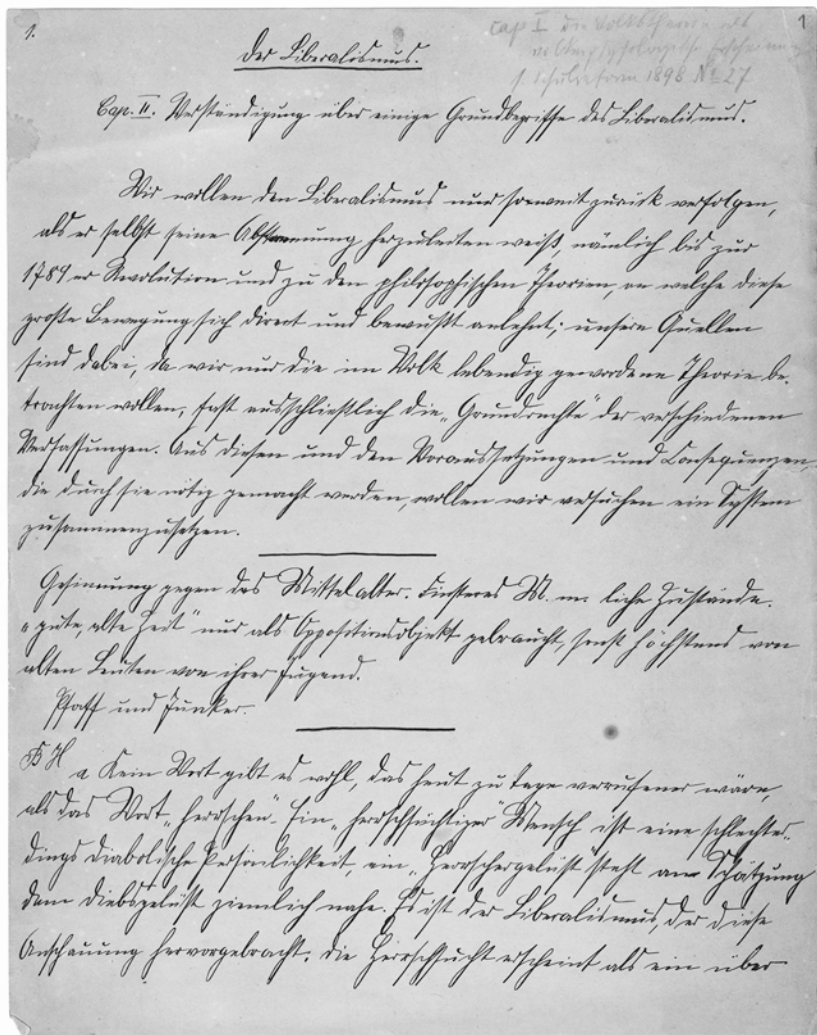 1.
1
Cap I die Volkstheorie als
Erscheinung
s. 1898 No 27
Der Liberalismus.
Cap. II. Verständigung über einige Grundbegriffe des Liberalismus.
Wir wollen den Liberalismus nur soweit zurück verfolgen,
als er selbst seine Abstammung herzuleiten weiß, nämlich bis zur
1789er Revolution und zu den philosophischen Theorien, an welche diese
große Bewegung sich direct und bewußt anlehnt; unsere Quellen
sind dabei, da wir nur die im Volk lebendig gewordene Theorie be-
trachten wollen, fast ausschließlich die „Grundrechte" der verschiedenen
Verfassungen. Aus diesen und den Voraussetzungen und Consequenzen,
die durch sie nötig gemacht werden, wollen wir versuchen ein System
zusammenzusetzen.
Gesinnung gegen das Mittelalter. Finsteres M. m. liche Zustände.
"gute, alte Zeit" nur als Oppositionsobjekt gebraucht, sonst höchstens von
alten Leuten von ihrer Jugend.
Pfaff und Junker.
a Kein Wort gibt es wohl, das heut zu tage verrufener wäre,
als das Wort „herrschen". Ein „herrschsüchtiger" Mensch ist eine schlechter-
dings diabolische Persönlichkeit, ein „Herrschergelüst" steht an Schätzung
dem Diebsgelüst ziemlich nahe. Es ist der Liberalismus, der diese
Anschauung hervorgebracht. Die Herrschsucht erscheint als ein über